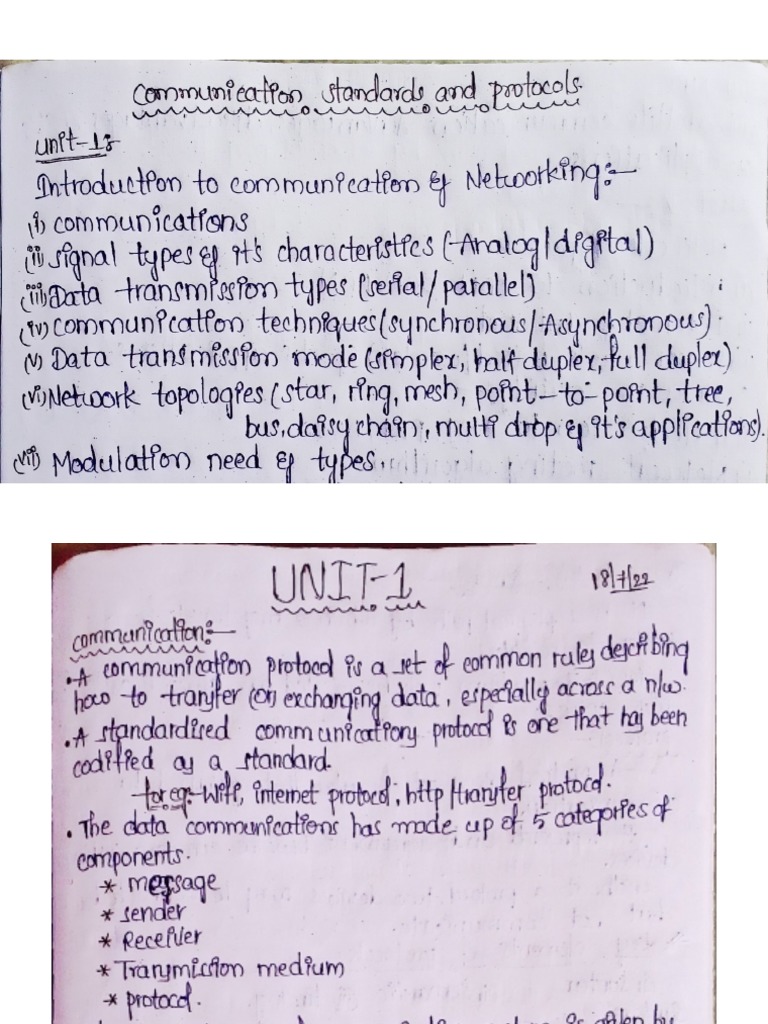 Communication standards and protocols.
Unit-1:
Introduction to communication & Networking:-
(i) communications
(ii) signal types & it's characteristics (Analog/digital)
(iii) Data transmission types (serial/parallel)
(iv) communication techniques (synchronous/Asynchronous)
(v) Data transmission mode (simplex, half duplex, full duplex)
(vi) Network topologies (star, ring, mesh, point-to-point, tree,
bus, daisy chain, multi drop & it's applications).
(vii) Modulation need & types.
UNIT-1
18/7/22
communication:-
• A communication protocol is a set of common rules describing
how to transfer (or) exchanging data, especially across a n/w.
• A standardised communications protocol is one that has been
codified as a standard.
for eg:- Wifi, internet protocol, http/transfer protocol.
• The data communications has made up of 5 categories of
components.
* message
* sender
* Receiver
* Transmission medium
* protocol.
is by